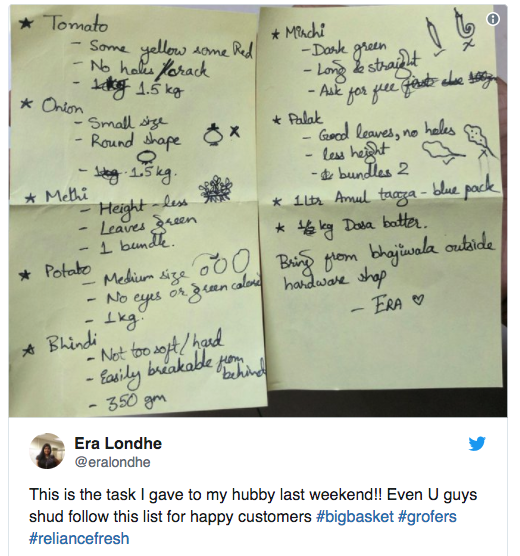 * Tomato
- Some yellow some Red
- No holes/crack
- 1.5 kg
* Onion
- Small size
- Round shape
x
- 1kg 1.5 kg.
* Methi
- Height - less
- Leaves green
- 1 bundle.
* Potato
- Medium size
- No eyes or green colored
- 1kg.
* Bhindi
- Not too soft/hard
- Easily breakable from behind
- 350 gm
* Mirchi
- Dark green
- Long & straight
- Ask for free
* Palak
- Good leaves, no holes
- less height
- bundles 2
* 1 ltr Amul taaza - blue pack
* kg Dosa batter.
Bring from bhajiwala outside
hardware shop
- ERA ♡
Era Londhe
@eralondhe
This is the task I gave to my hubby last weekend!! Even U guys
shud follow this list for happy customers #bigbasket #grofers
#reliancefresh